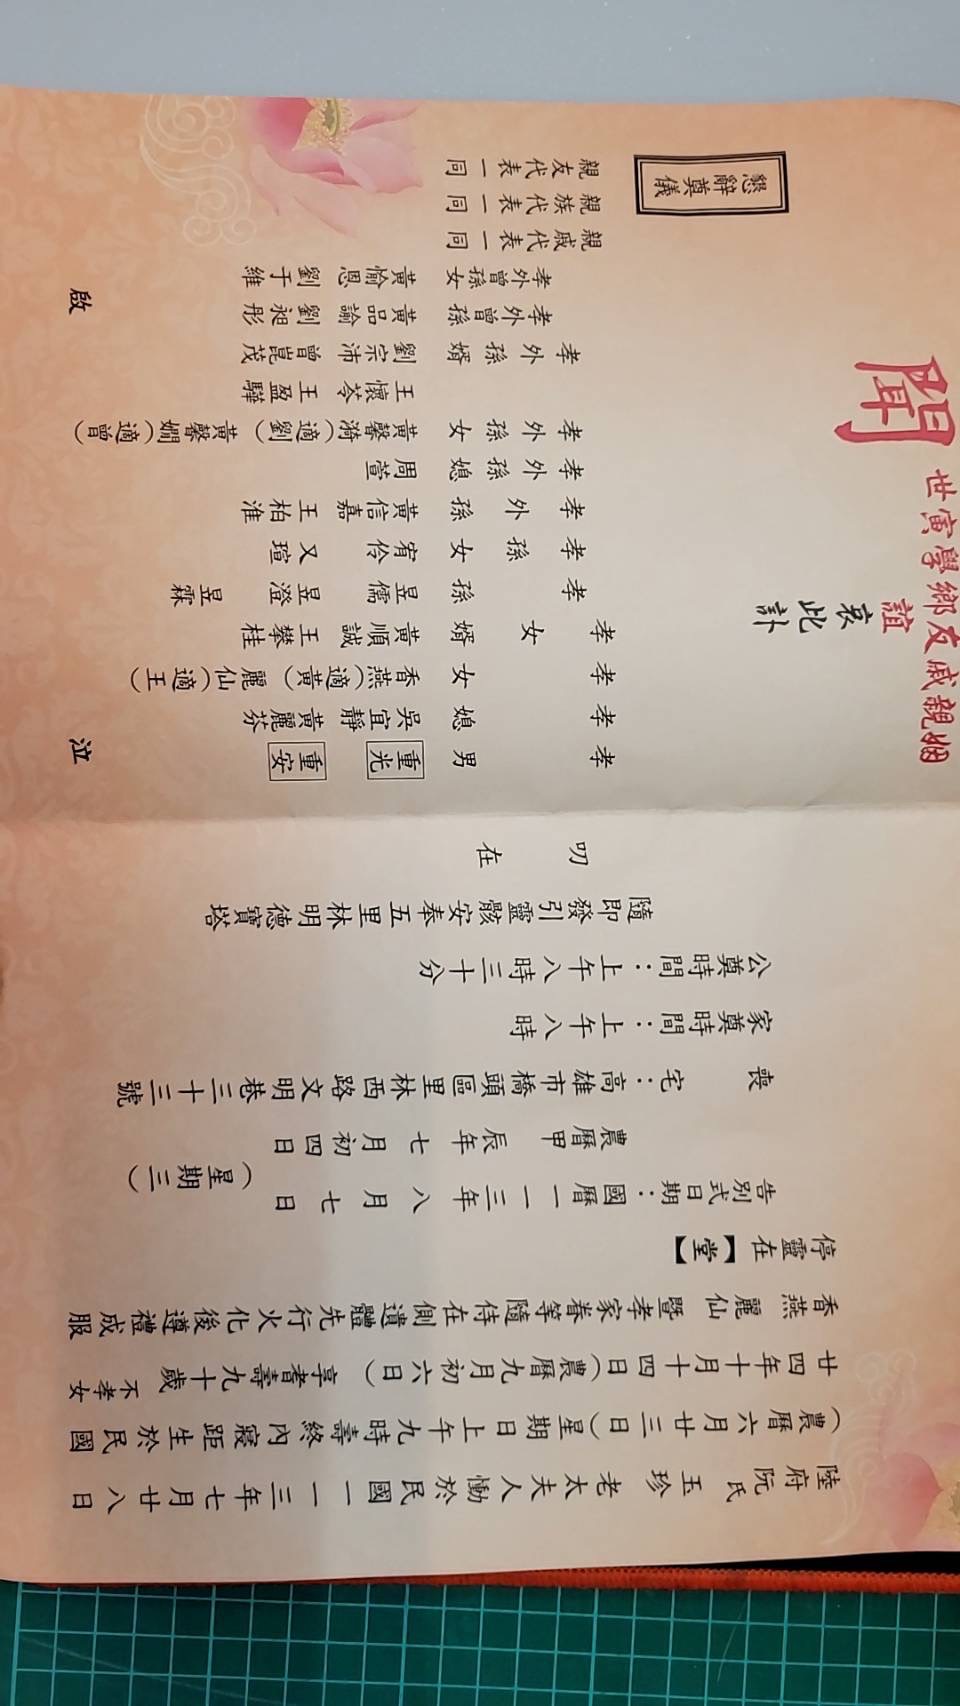 陸府阮氏玉珍老太夫人慟於民國一一三年七月廿八日
(農曆六月廿三日)星期日上午九時壽終內寢距生於民國
廿四年十月十四日(農曆九月初六日)享耆壽九十歲 不孝女
香燕 麗仙 暨孝家眷等隨侍在側遺體先行火化後遵禮成服
停靈在【堂】
告別式日期:國曆一一三年八月七日
農曆甲辰年七月初四日
(星期三)
喪宅:高雄市橋頭區林西路文明巷三十三號
家奠時間:上午八時
公奠時間:上午八時三十分
隨即發引靈骸安奉五里林明德寶塔
叨在
世寅學鄉友戚親姻
誼
哀此訃
聞
孝男 重光 重安
孝媳 吳宜靜 黃麗芬
孝女 香燕(適黃) 麗仙(適王)
孝女婿 黃順誠 王攀桂
孝孫 昱儒 昱澄 昱霖
孝孫女 宥伶 又瑄
孝外孫 黃信嘉 王柏淮
孝外孫媳 周萱
孝外孫女 黃馨漪(適劉) 黃馨嫺(適曾)
王懷苓 王盈驊
孝外孫婿 劉宗沛 曾崑茂
孝外曾孫 黃品諭 劉昶彤
孝外曾孫女 黃愉恩 劉于維
親戚代表一同
親族代表一同
親友代表一同
泣啟
懇辭奠儀